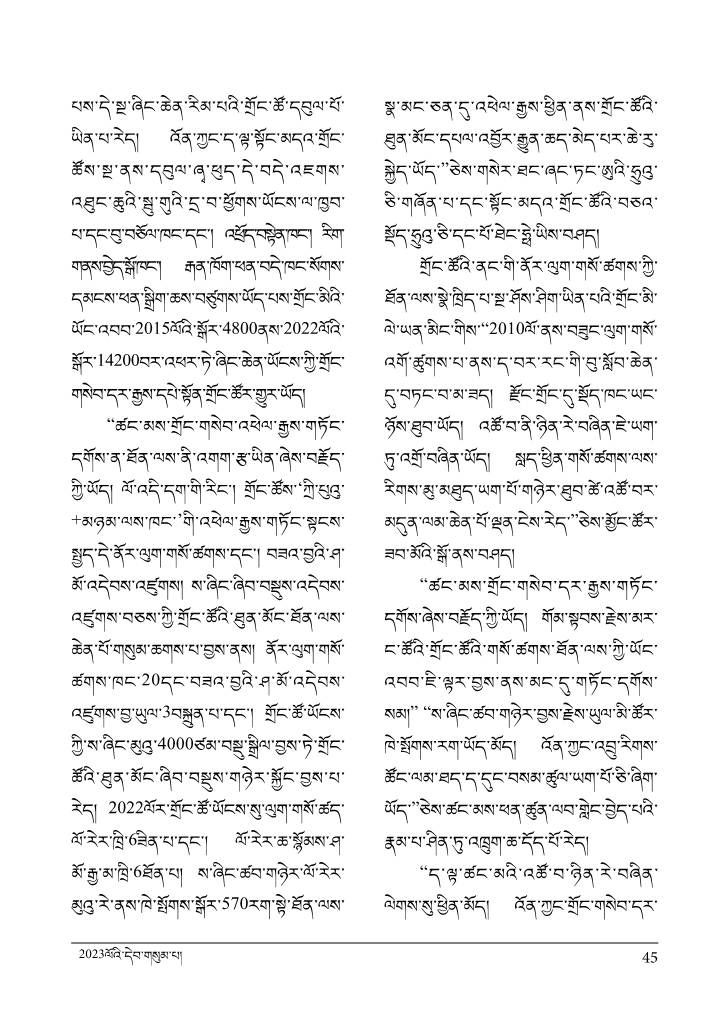 པས་དེ་སྔ་ཞིང་ཆེན་རིམ་པའི་གྲོང་ཚོ་དབུལ་པོ་
ཡིན་པ་རེད། འོན་ཀྱང་ད་ལྟ་སྟོང་མདའ་གྲོང་
ཚོས་སྔ་ནས་དབུལ་ཞྭ་ཕུད་དེ་བདེ་འཇགས་
འཐུང་ཆུའི་སྦུ་གུའི་དྲ་བ་ཕྱོགས་ཡོངས་ལ་ཁྱབ་
པ་དང་བུ་བཅོལ་ཁང་དང་། འཕྲོད་བསྟེན་ཁང་། རིག་
གནས་བྱེད་སྒོ་ཁང་། རྒན་ཁོག་ཕན་བདེ་ཁང་སོགས་
དམངས་ཕན་སྒྲིག་ཆས་བཙུགས་ཡོད་པས་གྲོང་མིའི་
ཡོང་འབབ་2015ལོའི་སྒོར་4800ནས་2022ལོའི་
སྒོར་14200བར་འཕར་ཏེ་ཞིང་ཆེན་ཡོངས་ཀྱི་གྲོང་
གསེབ་དར་རྒྱས་དཔེ་སྟོན་གྲོང་ཚོར་གྱུར་ཡོད།
“ཚང་མས་གྲོང་གསེབ་འཕེལ་རྒྱས་གཏོང་
དགོས་ན་ཐོན་ལས་ནི་འགག་རྩ་ཡིན་ཞེས་བརྗོད་
ཀྱི་ཡོད། ལོ་འདི་དག་གི་རིང་། གྲོང་ཚོས་‘ཀྲི་པུའུ་
+མཉམ་ལས་ཁང་’གི་འཕེལ་རྒྱས་གཏོང་སྟངས་
སྤྱད་དེ་ནོར་ལུག་གསོ་ཚགས་དང་། བཟའ་བྱའི་ཤ་
མོ་འདེབས་འཛུགས། ས་ཞིང་ཞིབ་བསྡུས་འདེབས་
འཛུགས་བཅས་ཀྱི་གྲོང་ཚོའི་ཐུན་མོང་ཐོན་ལས་
ཆེན་པོ་གསུམ་ཆགས་པ་བྱས་ནས། ནོར་ལུག་གསོ་
ཚགས་ཁང་20དང་བཟའ་བྱའི་ཤ་མོ་འདེབས་
འཛུགས་བྱ་ཡུལ་3བསྐྲུན་པ་དང་། གྲོང་ཚོ་ཡོངས་
ཀྱི་ས་ཞིང་མུའུ་4000ཙམ་བསྡུ་སྒྲིལ་བྱས་ཏེ་གྲོང་
ཚོའི་ཐུན་མོང་ཞིབ་བསྡུས་གཉེར་སྐྱོང་བྱས་པ་
རེད། 2022ལོར་གྲོང་ཚོ་ཡོངས་སུ་ལུག་གསོ་ཚད་
ལོ་རེར་ཁྲི་6ཟིན་པ་དང་། ལོ་རེར་ཆ་སྙོམས་ཤ་
མོ་རྒྱ་མ་ཁྲི་6ཐོན་པ། ས་ཞིང་ཚབ་གཉེར་ལོ་རེར་
མུའུ་རེ་ནས་ཁེ་སྤོགས་སྒོར་570རག་སྟེ་ཐོན་ལས་
སྣ་མང་ཅན་དུ་འཕེལ་རྒྱས་ཕྱིན་ནས་གྲོང་ཚོའི་
ཐུན་མོང་དཔལ་འབྱོར་རྒྱུན་ཆད་མེད་པར་ཆེ་རུ་
སྐྱེད་ཡོད་”ཅེས་གསེར་ཐང་ཞང་ཏང་ཨུའི་ཧྲུའུ་
ཅི་གཞོན་པ་དང་སྟོང་མདའ་གྲོང་ཚོའི་བཅའ་
སྡོད་ཧྲུའུ་ཅི་དང་པོ་ཐེང་ཧྥེ་ཡིས་བཤད།
གྲོང་ཚོའི་ནང་གི་ནོར་ལུག་གསོ་ཚགས་ཀྱི་
ཐོན་ལས་སྣེ་ཁྲིད་པ་སྔ་ཤོས་ཤིག་ཡིན་པའི་གྲོང་མི་
ལེ་ཡན་མིང་གིས་“2010ལོ་ནས་བཟུང་ལུག་གསོ་
འགོ་ཚུགས་པ་ནས་ད་བར་རང་གི་བུ་སློབ་ཆེན་
དུ་བཏང་བ་མ་ཟད། རྫོང་གྲོང་དུ་སྡོད་ཁང་ཡང་
ཉོས་ཐུབ་ཡོད། འཚོ་བ་ནི་ཉིན་རེ་བཞིན་ཇེ་ཡག་
ཏུ་འགྲོ་བཞིན་ཡོད། སླད་ཕྱིན་གསོ་ཚགས་ལས་
རིགས་མུ་མཐུད་ཡག་པོ་གཉེར་ཐུབ་ཚེ་འཚོ་བར་
མདུན་ལམ་ཆེན་པོ་ལྡན་ངེས་རེད་”ཅེས་མྱོང་ཚོར་
ཟབ་མོའི་སྒོ་ནས་བཤད།
“ཚང་མས་གྲོང་གསེབ་དར་རྒྱས་གཏོང་
དགོས་ཞེས་བརྗོད་ཀྱི་ཡོད། གོམ་སྟབས་རྗེས་མར་
ང་ཚོའི་གྲོང་ཚོའི་གསོ་ཚགས་ཐོན་ལས་ཀྱི་ཡོང་
འབབ་ཇི་ལྟར་བྱས་ནས་མང་དུ་གཏོང་དགོས་
སམ།” “ས་ཞིང་ཚབ་གཉེར་བྱས་རྗེས་ཡུལ་མི་ཚོར་
ཁེ་སྤོགས་རག་ཡོད་མོད། འོན་ཀྱང་འབྲུ་རིགས་
ཚོང་ལམ་ཐད་ད་དུང་བསམ་ཚུལ་ཡག་པོ་ཅི་ཞིག་
ཡོད་”ཅེས་ཚང་མས་ཕན་ཚུན་ལབ་གླེང་བྱེད་པའི་
རྣམ་པ་ཤིན་ཏུ་འཁྲུག་ཆ་དོད་པོ་རེད།
“ད་ལྟ་ཚང་མའི་འཚོ་བ་ཉིན་རེ་བཞིན་
ལེགས་སུ་ཕྱིན་མོད། འོན་ཀྱང་གྲོང་གསེབ་དར་
2023ལོའི་དེབ་གསུམ་པ།
45